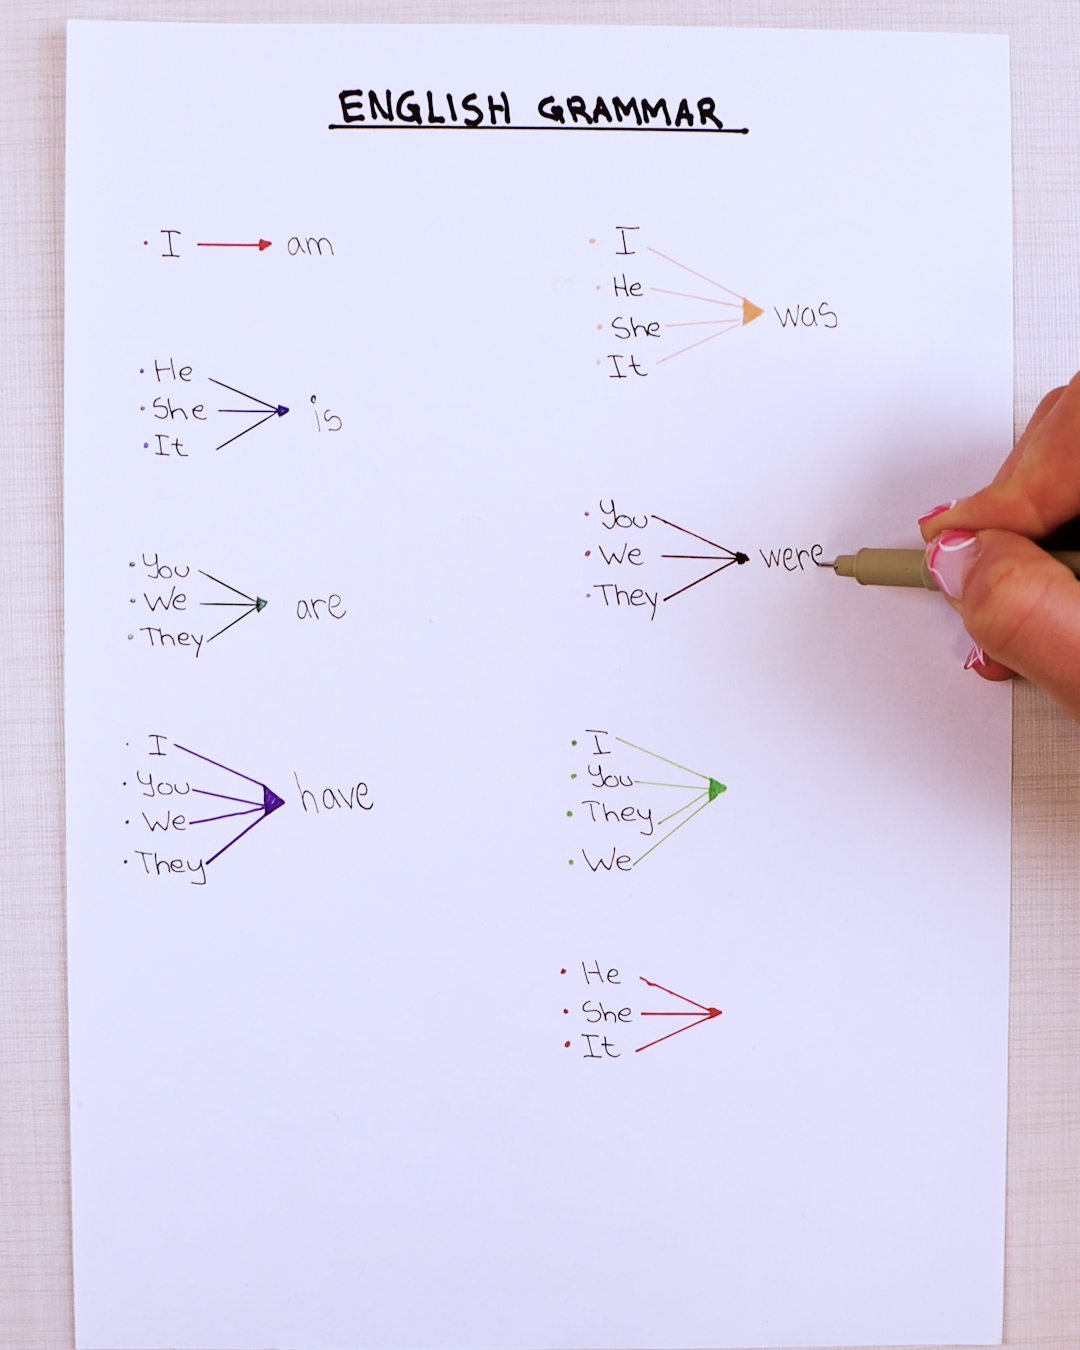 ENGLISH GRAMMAR
I am
He
She
It
is
You
We
They
are
I
You
We
They
have
I
He
She
It
was
You
We
They
were
I
You
They
We
He
She
It